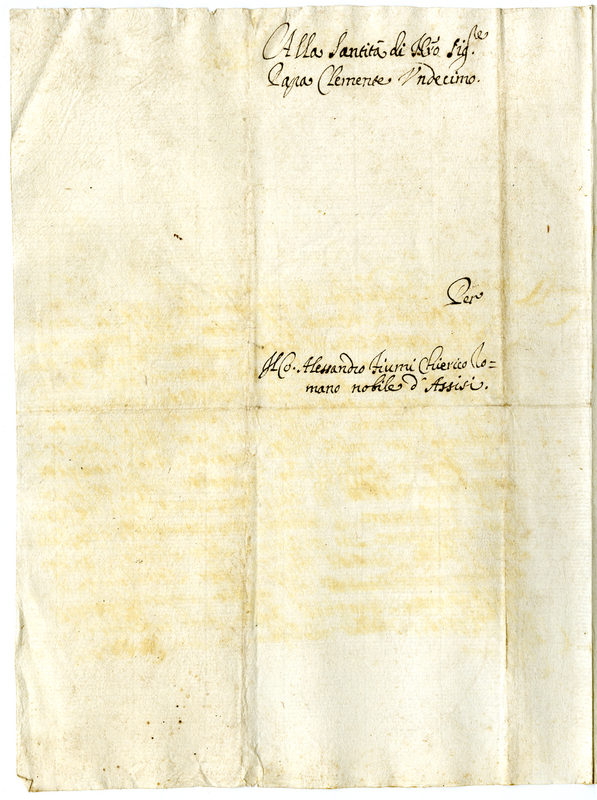 Alla Santità di Nro Sig.re
Papa Clemente Undecimo.
Per
Il Co. Alessandro Fiumi Chierico Ro=
mano nobile d'Assisi.